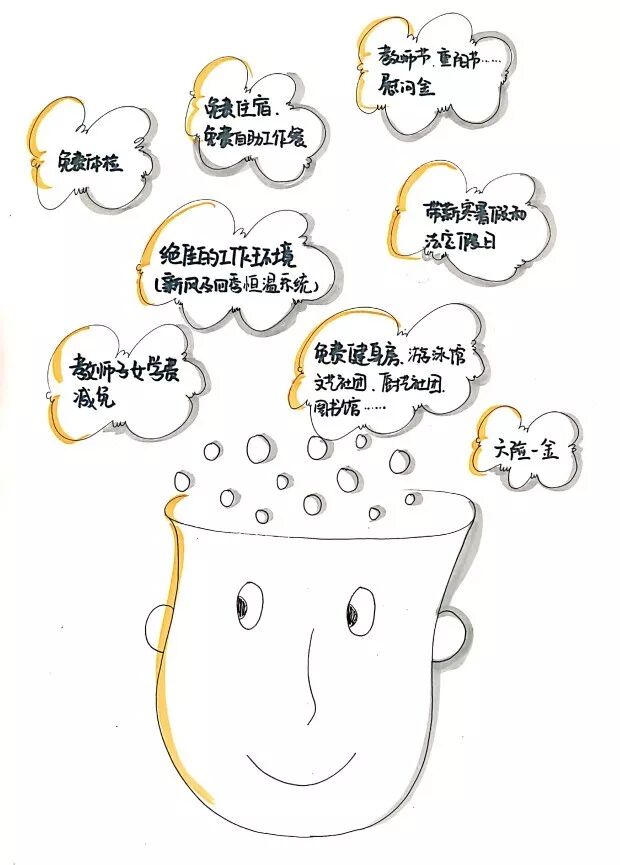 教师节、重阳节……
慰问金
免费住宿、
免费自助工作餐
免费体检
带薪寒暑假和
法定假日
绝佳的工作环境
(新风及四季恒温系统)
免费健身房、游泳馆
文艺社团、厨艺社团、
图书馆……
教师子女学费
减免
六险一金